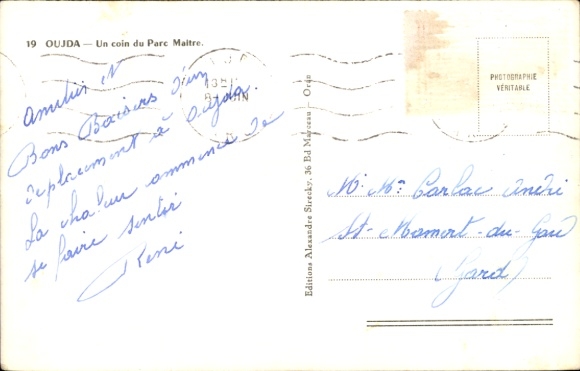 19 OUJDA — Un coin du Parc Maître.
Bons Baisers d'un
déplacement à Oujda.
La chaleur commence de
se faire sentir
René
Editions Alexandre Sirecky, 36 Bd Marceau — Oran
PHOTOGRAPHIE
VÉRITABLE
Mr Me Carlac André
St-Mamert-du-Gard
(Gard)